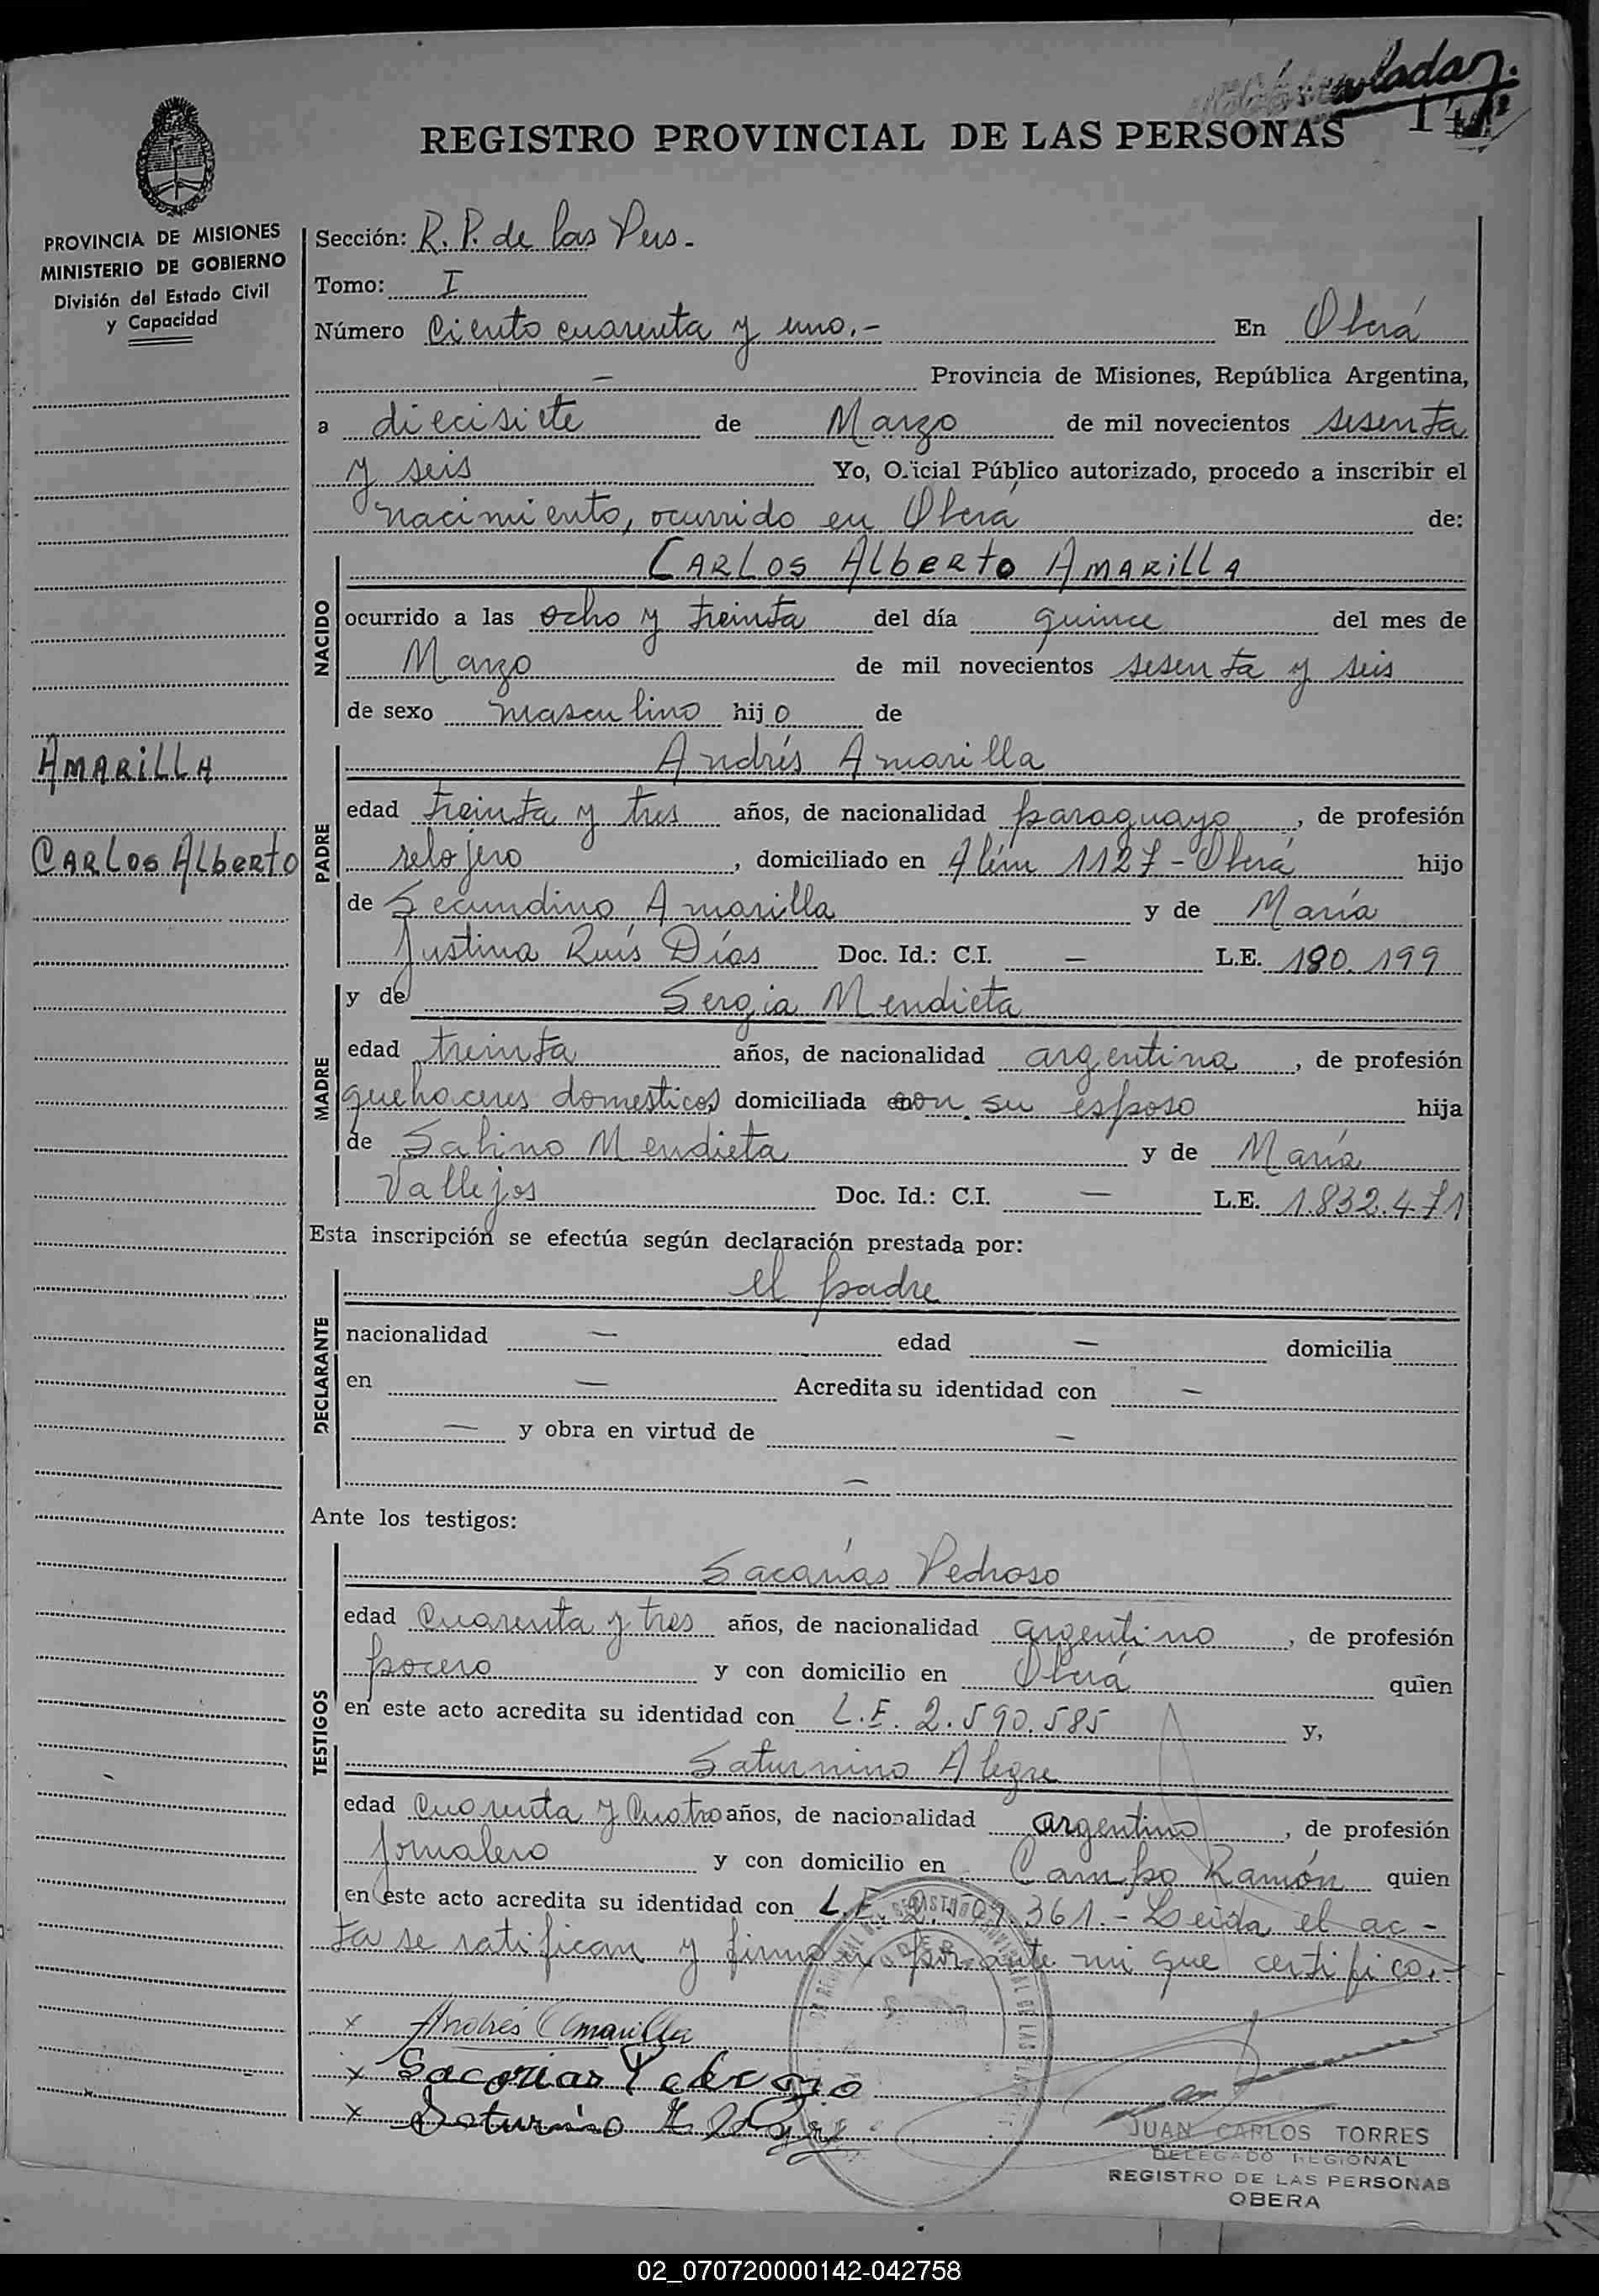 REGISTRO PROVINCIAL DE LAS PERSONAS
PROVINCIA DE MISIONES
MINISTERIO DE GOBIERNO
División del Estado Civil
y Capacidad
AMARILLA
CARLOS ALBERTO
Sección: R. P. de las Pers.
Tomo: I
Número Ciento cuarenta y uno.- En Oberá
Provincia de Misiones, República Argentina,
a diecisiete de Marzo de mil novecientos sesenta
y seis Yo, Oficial Público autorizado, procedo a inscribir el
nacimiento, ocurrido en Oberá de:
NACIDO
CARLOS ALBERTO AMARILLA
ocurrido a las ocho y treinta del día quince del mes de
Marzo de mil novecientos sesenta y seis
de sexo masculino hijo de
PADRE
Andrés Amarilla
edad treinta y tres años, de nacionalidad paraguayo, de profesión
relojero, domiciliado en Além 1127 - Oberá hijo
de Secundino Amarilla y de María
Justina Ruís Días Doc. Id.: C.I. — L.E. 180.199
MADRE
y de Sergia Mendieta
edad treinta años, de nacionalidad argentina, de profesión
quehaceres domesticos domiciliada con su esposo hija
de Sabino Mendieta y de María
Vallejos Doc. Id.: C.I. — L.E. 1.832.471
Esta inscripción se efectúa según declaración prestada por:
DECLARANTE
el padre
nacionalidad — edad — domicilia
en — Acredita su identidad con —
— y obra en virtud de —
—
Ante los testigos:
TESTIGOS
Sacarías Pedroso
edad Cuarenta y tres años, de nacionalidad argentino, de profesión
pocero y con domicilio en Oberá quien
en este acto acredita su identidad con L.E. 2.590.585 y,
Saturnino Alegre
edad Cuarenta y Cuatro años, de nacionalidad argentino, de profesión
Jornalero y con domicilio en Campo Ramón quien
en este acto acredita su identidad con L.E. 361.- Leída el ac-
ta se ratifican y firman por ante mi que certifico.-
x Andrés Amarilla
x Sacarias Pedroso
x Saturnino Alegre
JUAN CARLOS TORRES
DELEGADO REGIONAL
REGISTRO DE LAS PERSONAS
OBERA
02_070720000142-042758